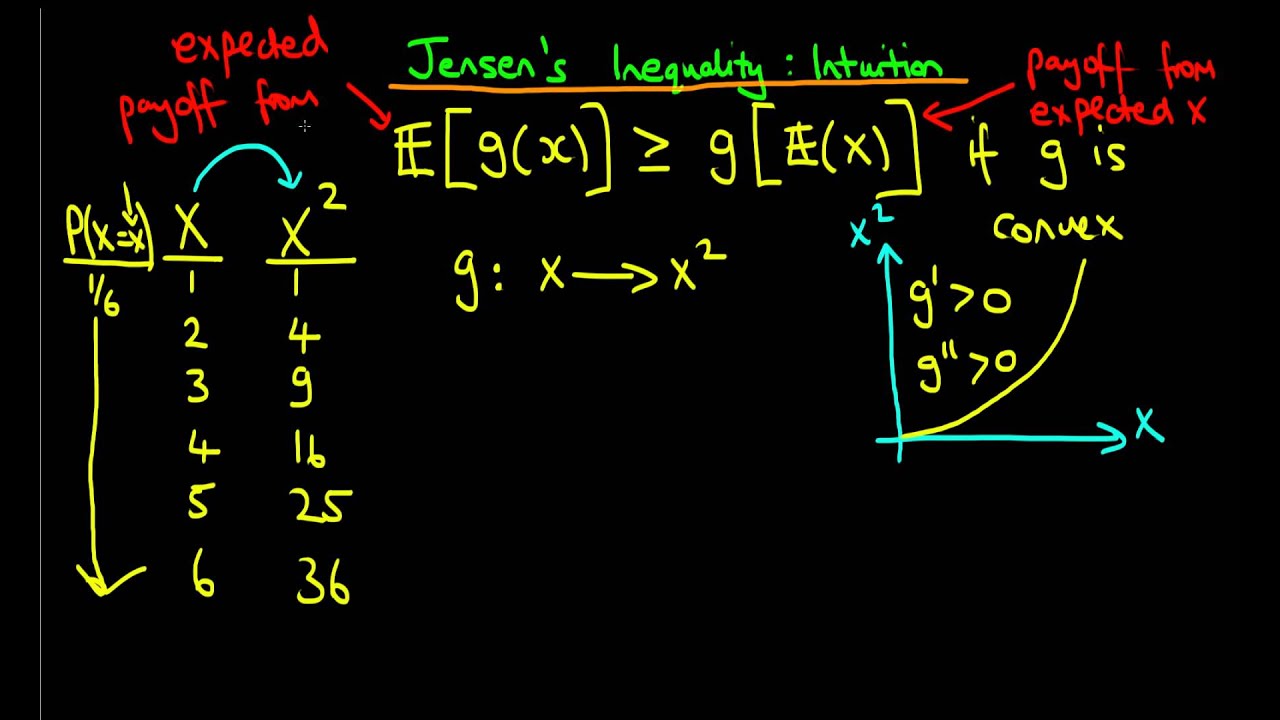 Jensen's Inequality : Intuition
expected
payoff from
payoff from
expected x
𝔼[g(x)] ≥ g[𝔼(x)] if g is
convex
P(X=x) X X²
1/6 1 1
2 4
3 9
4 16
5 25
6 36
g: x → x²
x²
g' > 0
g'' > 0
X